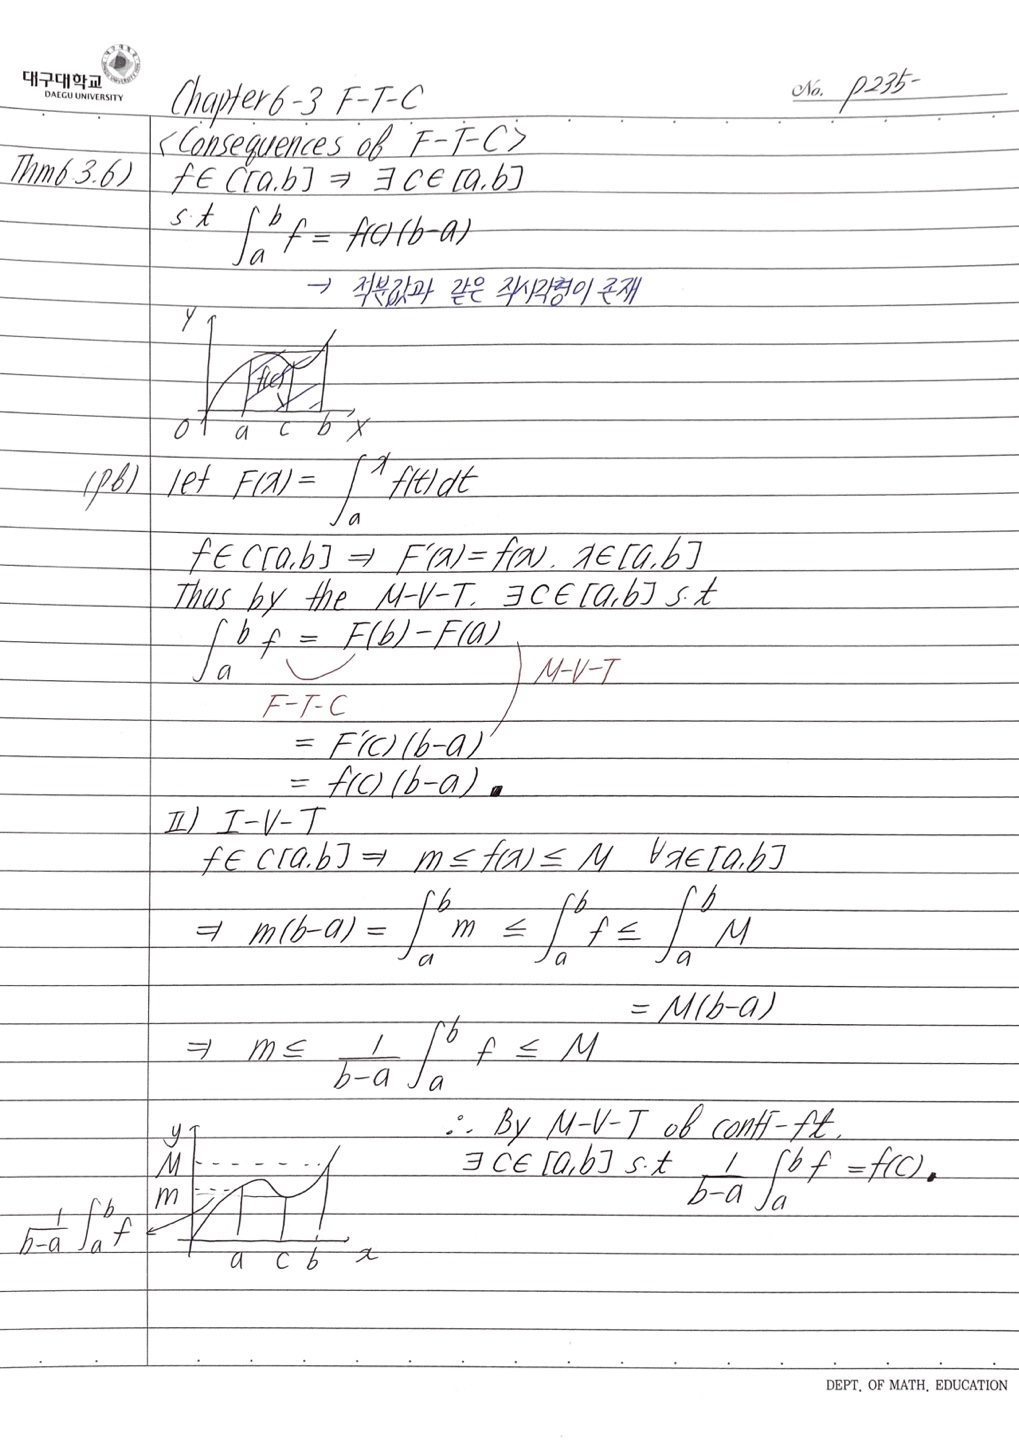 대구대학교
DAEGU UNIVERSITY
No. p235-
Chapter 6-3 F-T-C
<Consequences of F-T-C>
Thm 6.3.6) f∈C[a,b] ⇒ ∃c∈[a,b]
s.t ∫_a^b f = f(c)(b-a)
→ 적분값과 같은 직사각형이 존재
y
f(c)
O a c b x
(pf) let F(x) = ∫_a^x f(t)dt
f∈C[a,b] ⇒ F'(x)=f(x). x∈[a,b]
Thus by the M-V-T. ∃c∈[a,b] s.t
∫_a^b f = F(b)-F(a)
M-V-T
F-T-C
= F'(c)(b-a)
= f(c)(b-a).
Ⅱ) I-V-T
f∈C[a,b] ⇒ m ≤ f(x) ≤ M ∀x∈[a,b]
⇒ m(b-a) = ∫_a^b m ≤ ∫_a^b f ≤ ∫_a^b M
= M(b-a)
⇒ m ≤ 1/(b-a) ∫_a^b f ≤ M
∴ By M-V-T of conti-ft.
∃c∈[a,b] s.t 1/(b-a) ∫_a^b f = f(c).
y
M
m
1/(b-a) ∫_a^b f
a c b x
DEPT. OF MATH. EDUCATION